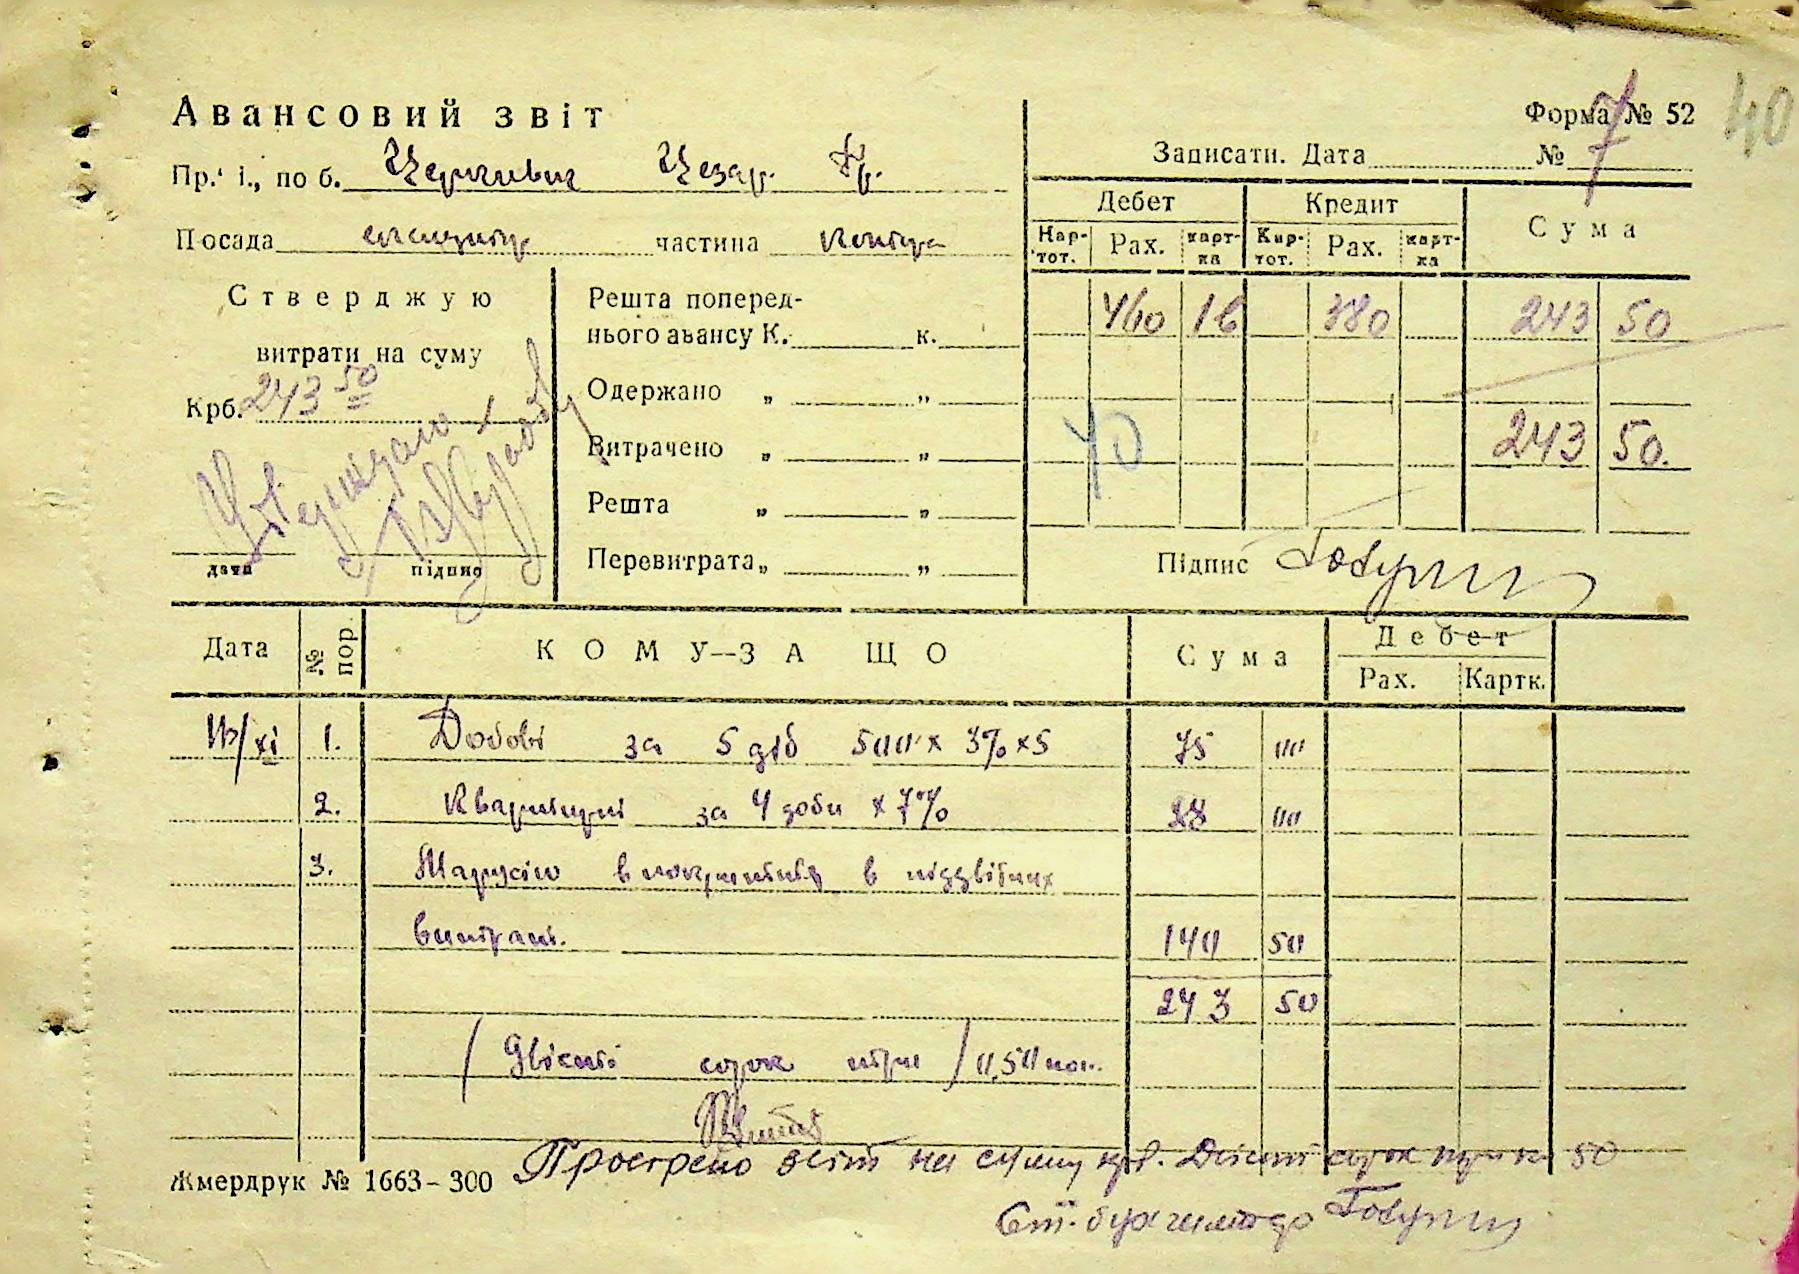 Авансовий звіт
Форма № 52
40
Записати. Дата № 7
Пр. і., по б. Цезар.
Посада частина
Дебет Кредит Сума
Кар-тот. Рах. карт-ка Кар-тот. Рах. карт-ка
Стверджую
витрати на суму
Крб. 243 50
дата підпис
Решта поперед-
нього авансу К. к.
Одержано „ „
Витрачено „ „
Решта „ „
Перевитрата „ „
460 16 380 243 50
40 243 50.
Підпис
Дата № пор. КОМУ—ЗА ЩО Сума Дебет
Рах. Картк.
1. Добові за 5 діб 500 х 3% х 5 75 00
2. Квартирні за 4 доби х 7% 28 00
3. в підзвітних
витрат. 140 50
243 50
(Двісті сорок три) 0,50 коп.
Жмердрук № 1663-300
Провірено звіт на суму крб. Двісті сорок три к 50
Ст. бухгалтер